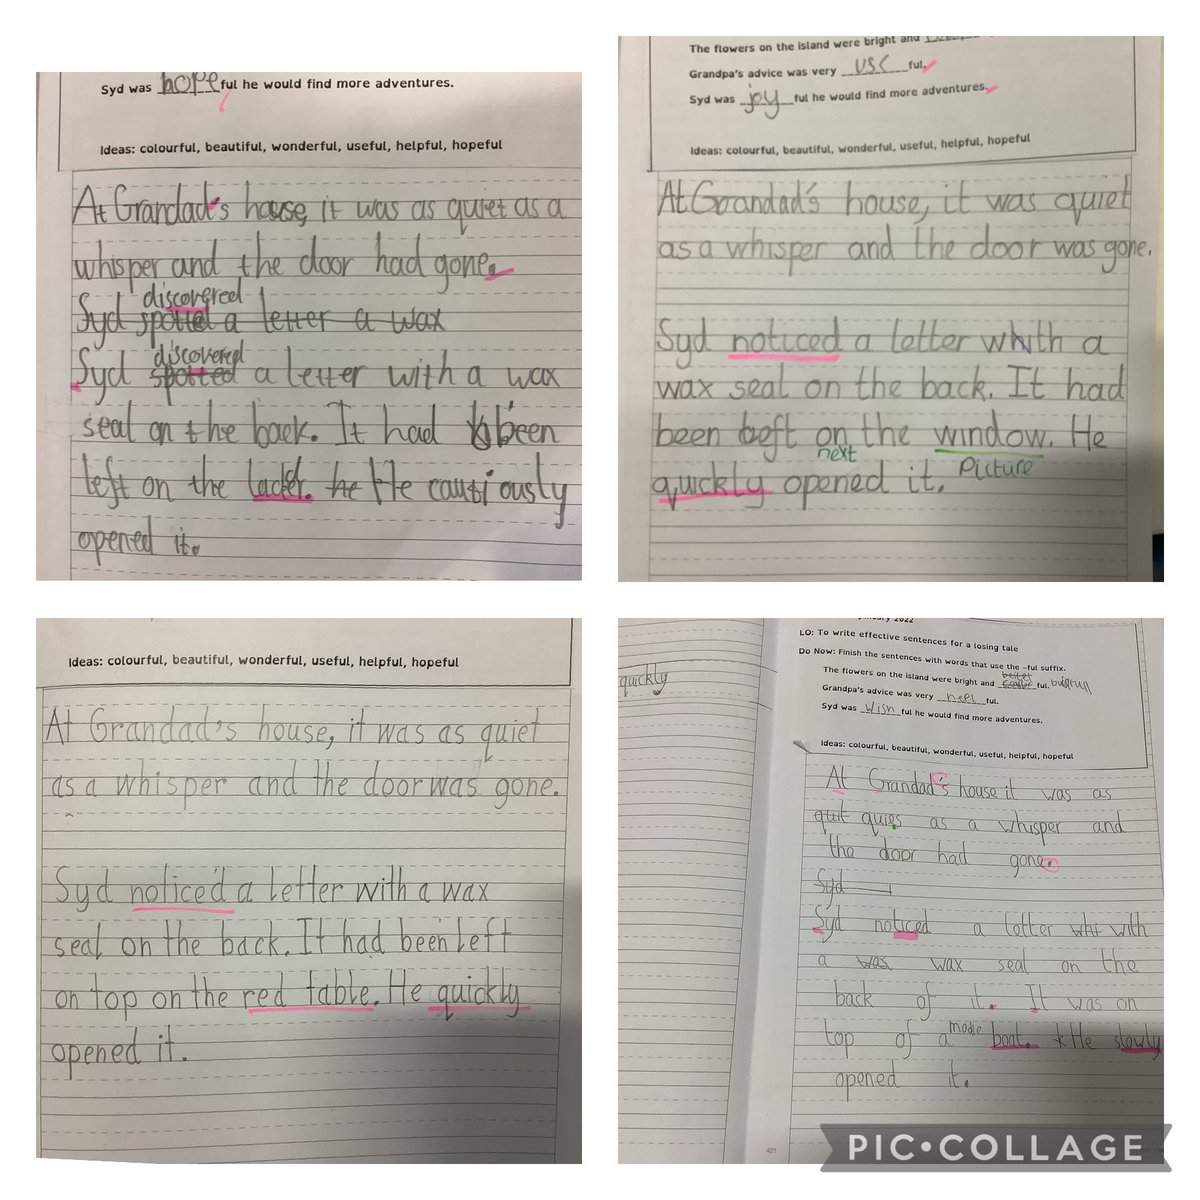 Syd was hopeful he would find more adventures.
Ideas: colourful, beautiful, wonderful, useful, helpful, hopeful
At Grandad's house, it was as quiet as a
whisper and the door had gone.
discovered
Syd spotted a letter a wax
discovered
Syd spotted a letter with a wax
seal on the back. It had been
left on the lader. he He cautiously
opened it.
The flowers on the island were bright and
Grandpa's advice was very useful.
Syd was joyful he would find more adventures.
Ideas: colourful, beautiful, wonderful, useful, helpful, hopeful
At Grandad's house, it was quiet
as a whisper and the door was gone.
Syd noticed a letter whith a
wax seal on the back. It had
been left on the window. He
next
Picture
quickly opened it.
Ideas: colourful, beautiful, wonderful, useful, helpful, hopeful
At Grandad's house, it was as quiet
as a whisper and the door was gone.
Syd noticed a letter with a wax
seal on the back. It had been left
on top on the red table. He quickly
opened it.
quickly
January 2022
LO: To write effective sentences for a losing tale
Do Now: Finish the sentences with words that use the -ful suffix.
The flowers on the island were bright and ful.
Grandpa's advice was very ful.
Syd was wishful he would find more adventures.
Ideas: colourful, beautiful, wonderful, useful, helpful, hopeful
At Grandad's house it was as
quit quies as a whisper and
the door had gone.
Syd
Syd noticed a letter wht with
a was wax seal on the
back of it. It was on
top of a modle boat. He slowly
opened it.
421
PIC•COLLAGE